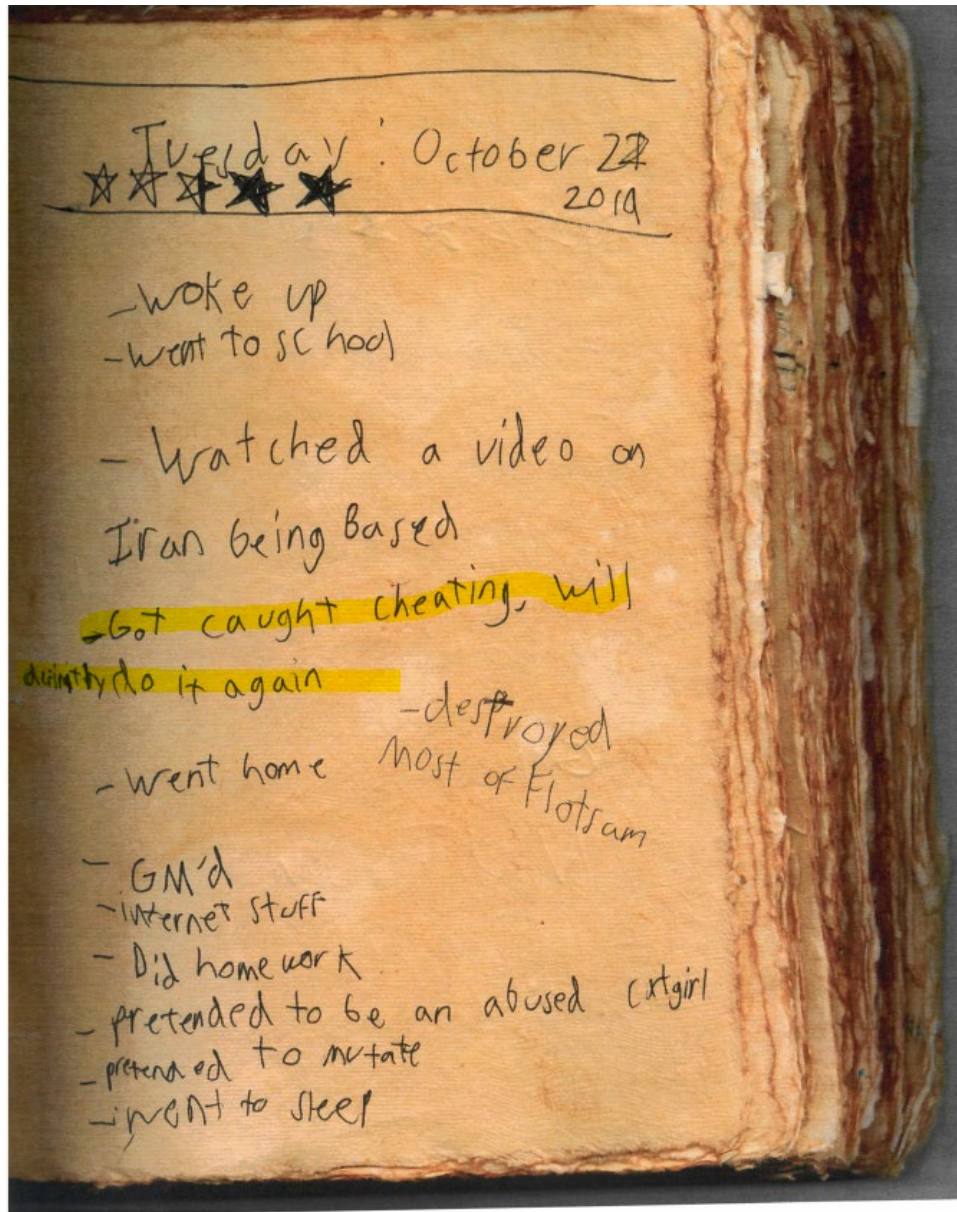 Tuesday: October 22
2019
-woke up
-went to school
- Watched a video on
Iran being Based
-Got caught cheating, will
do it again
-destroyed
Most of Flotsam
-went home
- GM'd
-internet stuff
- Did homework
- pretended to be an abused catgirl
- pretended to mutate
- went to sleep